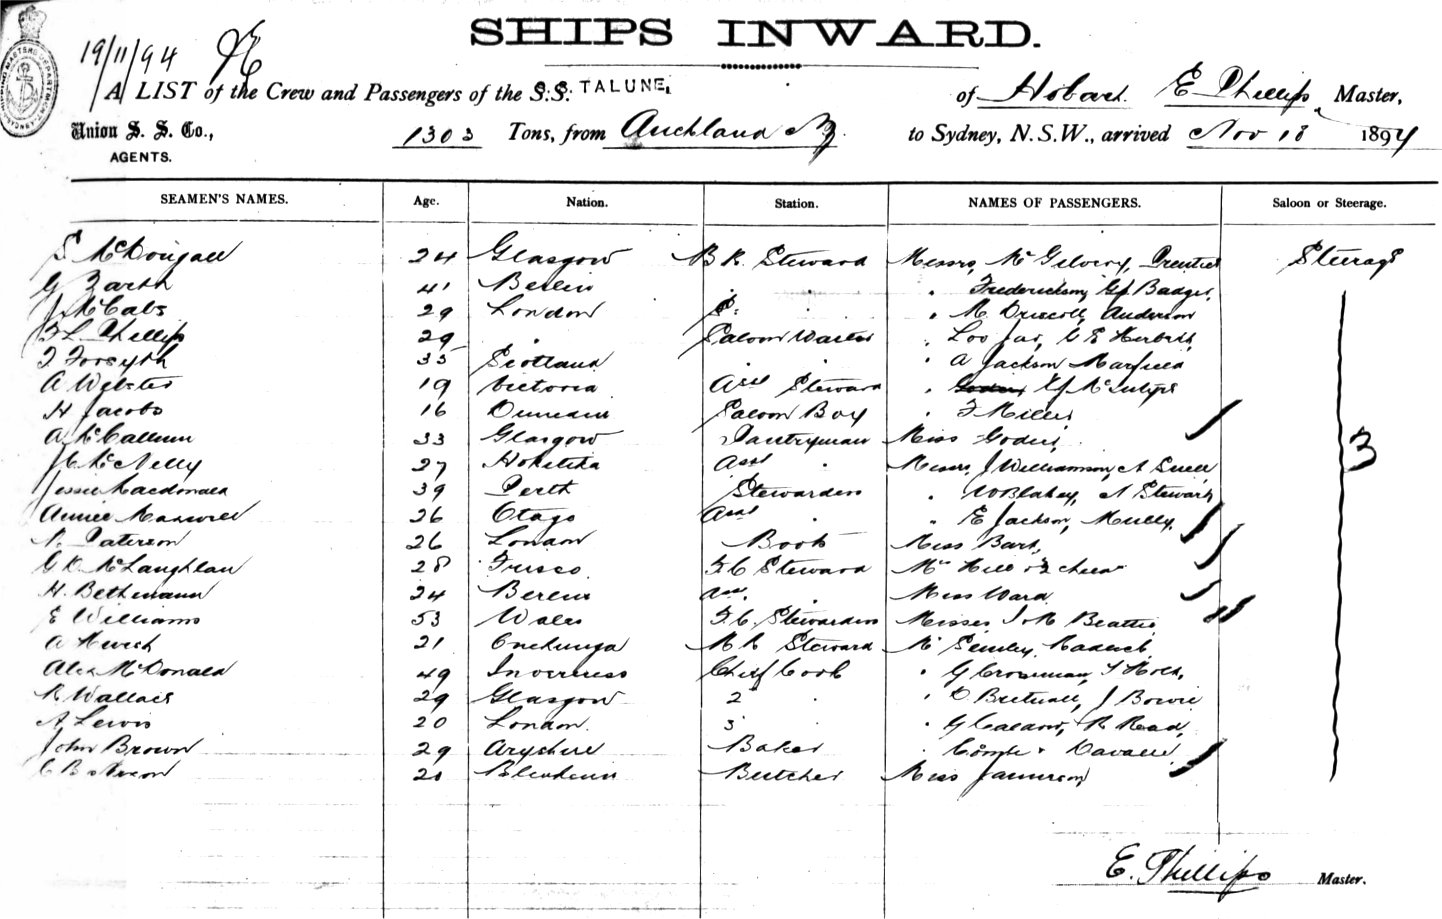 SHIPS INWARD.
19/11/94
A LIST of the Crew and Passengers of the S.S. TALUNE, of Hobart. E Phillips Master,
Union S. S. Co., AGENTS. 1303 Tons, from Auckland NZ. to Sydney, N.S.W., arrived Nov 18 1894
SEAMEN'S NAMES. Age. Nation. Station. NAMES OF PASSENGERS. Saloon or Steerage.
S McDougall 24 Glasgow B R. Steward Messrs, McGilvery, Prentice Steerage
G Barth 41 Berlin Frederickson, Badger,
J McCabe 29 London Driscoll, Anderson
F L Phillips 29 Saloon Waiter G E Herbert,
J Forsyth 35 Scotland A Jackson
A Webster 19 Victoria Asst Steward McIntyre
H Jacobs 16 Dunedin Saloon Boy F Miller
A McCallum 33 Glasgow Pantryman Miss
McNelly 27 Hokitika Asst Messrs, J Williamson, A Snell 3
Jessie Macdonald 39 Perth Stewardess W Blakey, A Stewart
Annie Maxwell 26 Otago Asst E Jackson,
N. Paterson 26 London Boots Miss
G D McLaughlan 28 Frisco. F.C Steward Mrs Hill & 2 child
H. Bethmann 24 Berlin Ass. Miss Ward
E Williams 53 Wales F.C. Stewardess Misses J M Beattie
A 21 Onehunga Steward
Alex McDonald 49 Inverness Chief Cook G Crossman, Holt,
R Wallace 29 Glasgow 2 J Bowie
A Lewis 20 London. 3 R Read,
John Brown 29 Baker
20 Blenheim Butcher Miss Jamieson
E. Phillips Master.